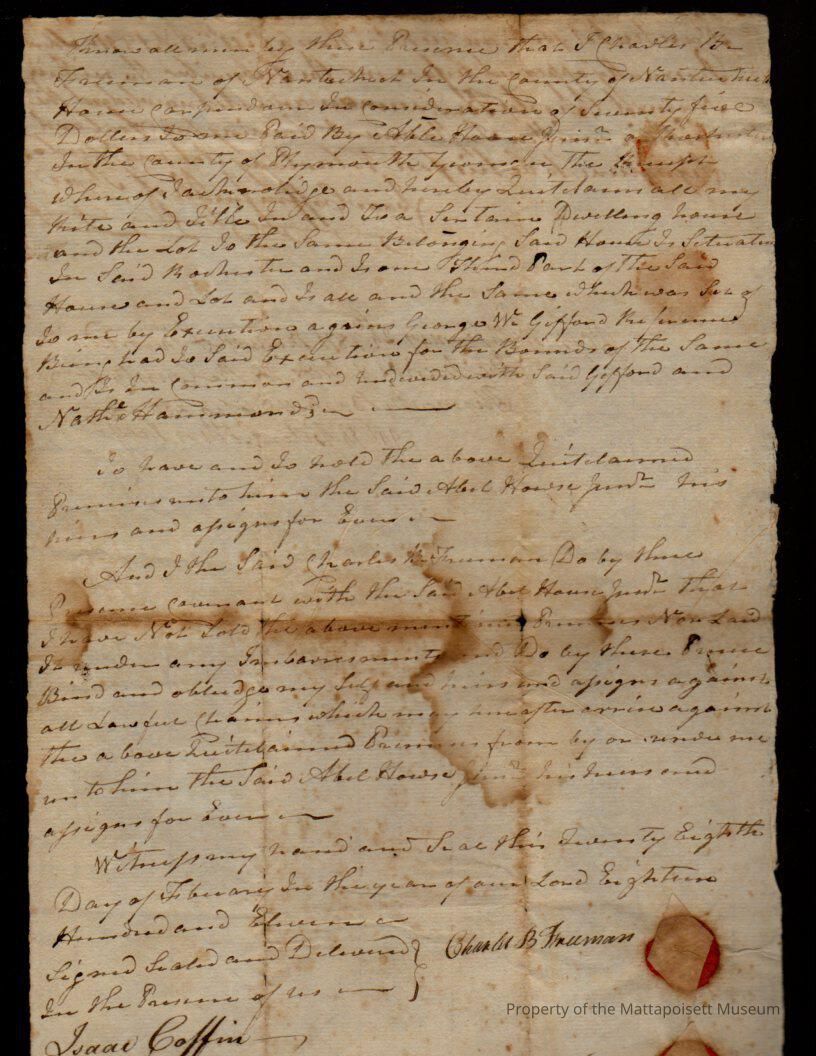 Know all men by these Presence that I Charles B
Freeman of Nantucket In the County of Nantucket
House carpender In consideration of Seventy five
Dollers to me Paid By Able House Junr of Rochester
In the County of Plymouth Yeoman the
where of I acknowlidge and hereby Quitclaim all my
Rite and Title In and To a Sertain Dwelling house
and the Lot To the Same Belonging Said House Is Setuated
In Said Rochester and Is one Third Part of the Said
House and Lot and Is all and the Same which was Set of
to me by Execution agains George W Gifford Refference
Being had to Said Execution for the Bounds of the Same
and Is In Common and undivided with Said Gifford and
Nathl Hammond
To have and to hold the above Quitclaimed
Premises unto him the Said Abel House Junr his
heirs and asigns for Ever
And I the Said Charles B Freeman Do by these
Presence Covenant with the Said Abel House Junr that
I have Not Sold the above mentiond Premises Nor Laid
In under any Imbaresment and Do by these Presence
Bind and obledge my Self and heirs and asigns against
all Lawful Claims which may hereafter arrive against
the above Quitclaimed Premises from by or under me
unto him the Said Abel House Junr his heirs and
asigns for Ever
Witness my hand and Seal this Twenty Eighth
Day of Febuary In the year of our Lord Eighteen
Hundred and Eleven
Signed Sealed and Delivered
Charles B Freeman
In the Presence of us
Property of the Mattapoisett Museum
Isaac Coffin